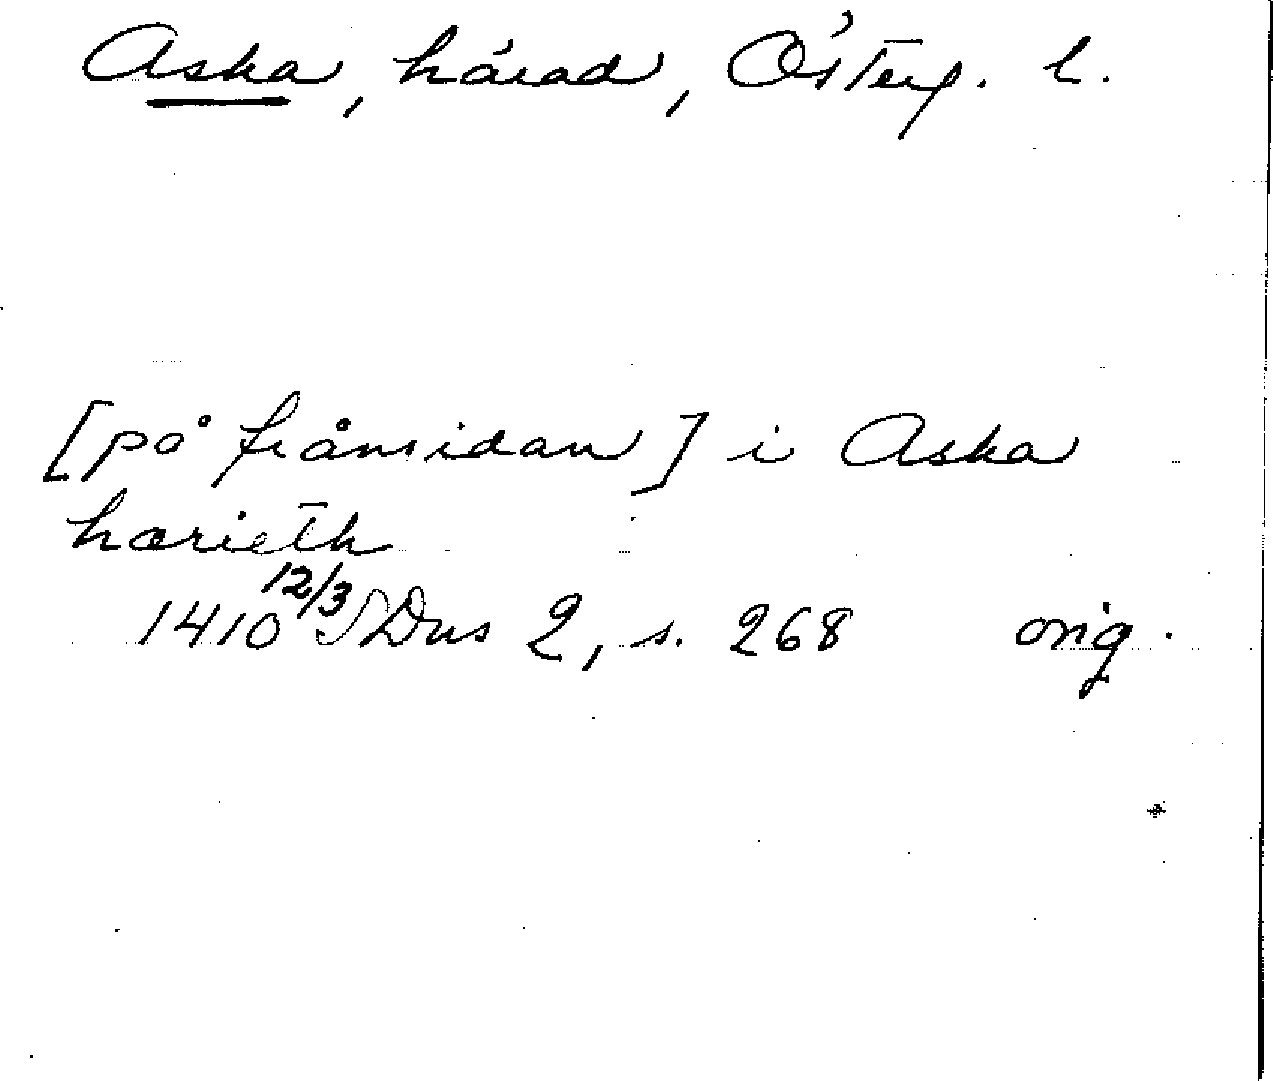 Aska, härad, Österg. l.
[på frånsidan] i Aska
hærieth
1410 12/3 SDns 2, s. 268 orig.